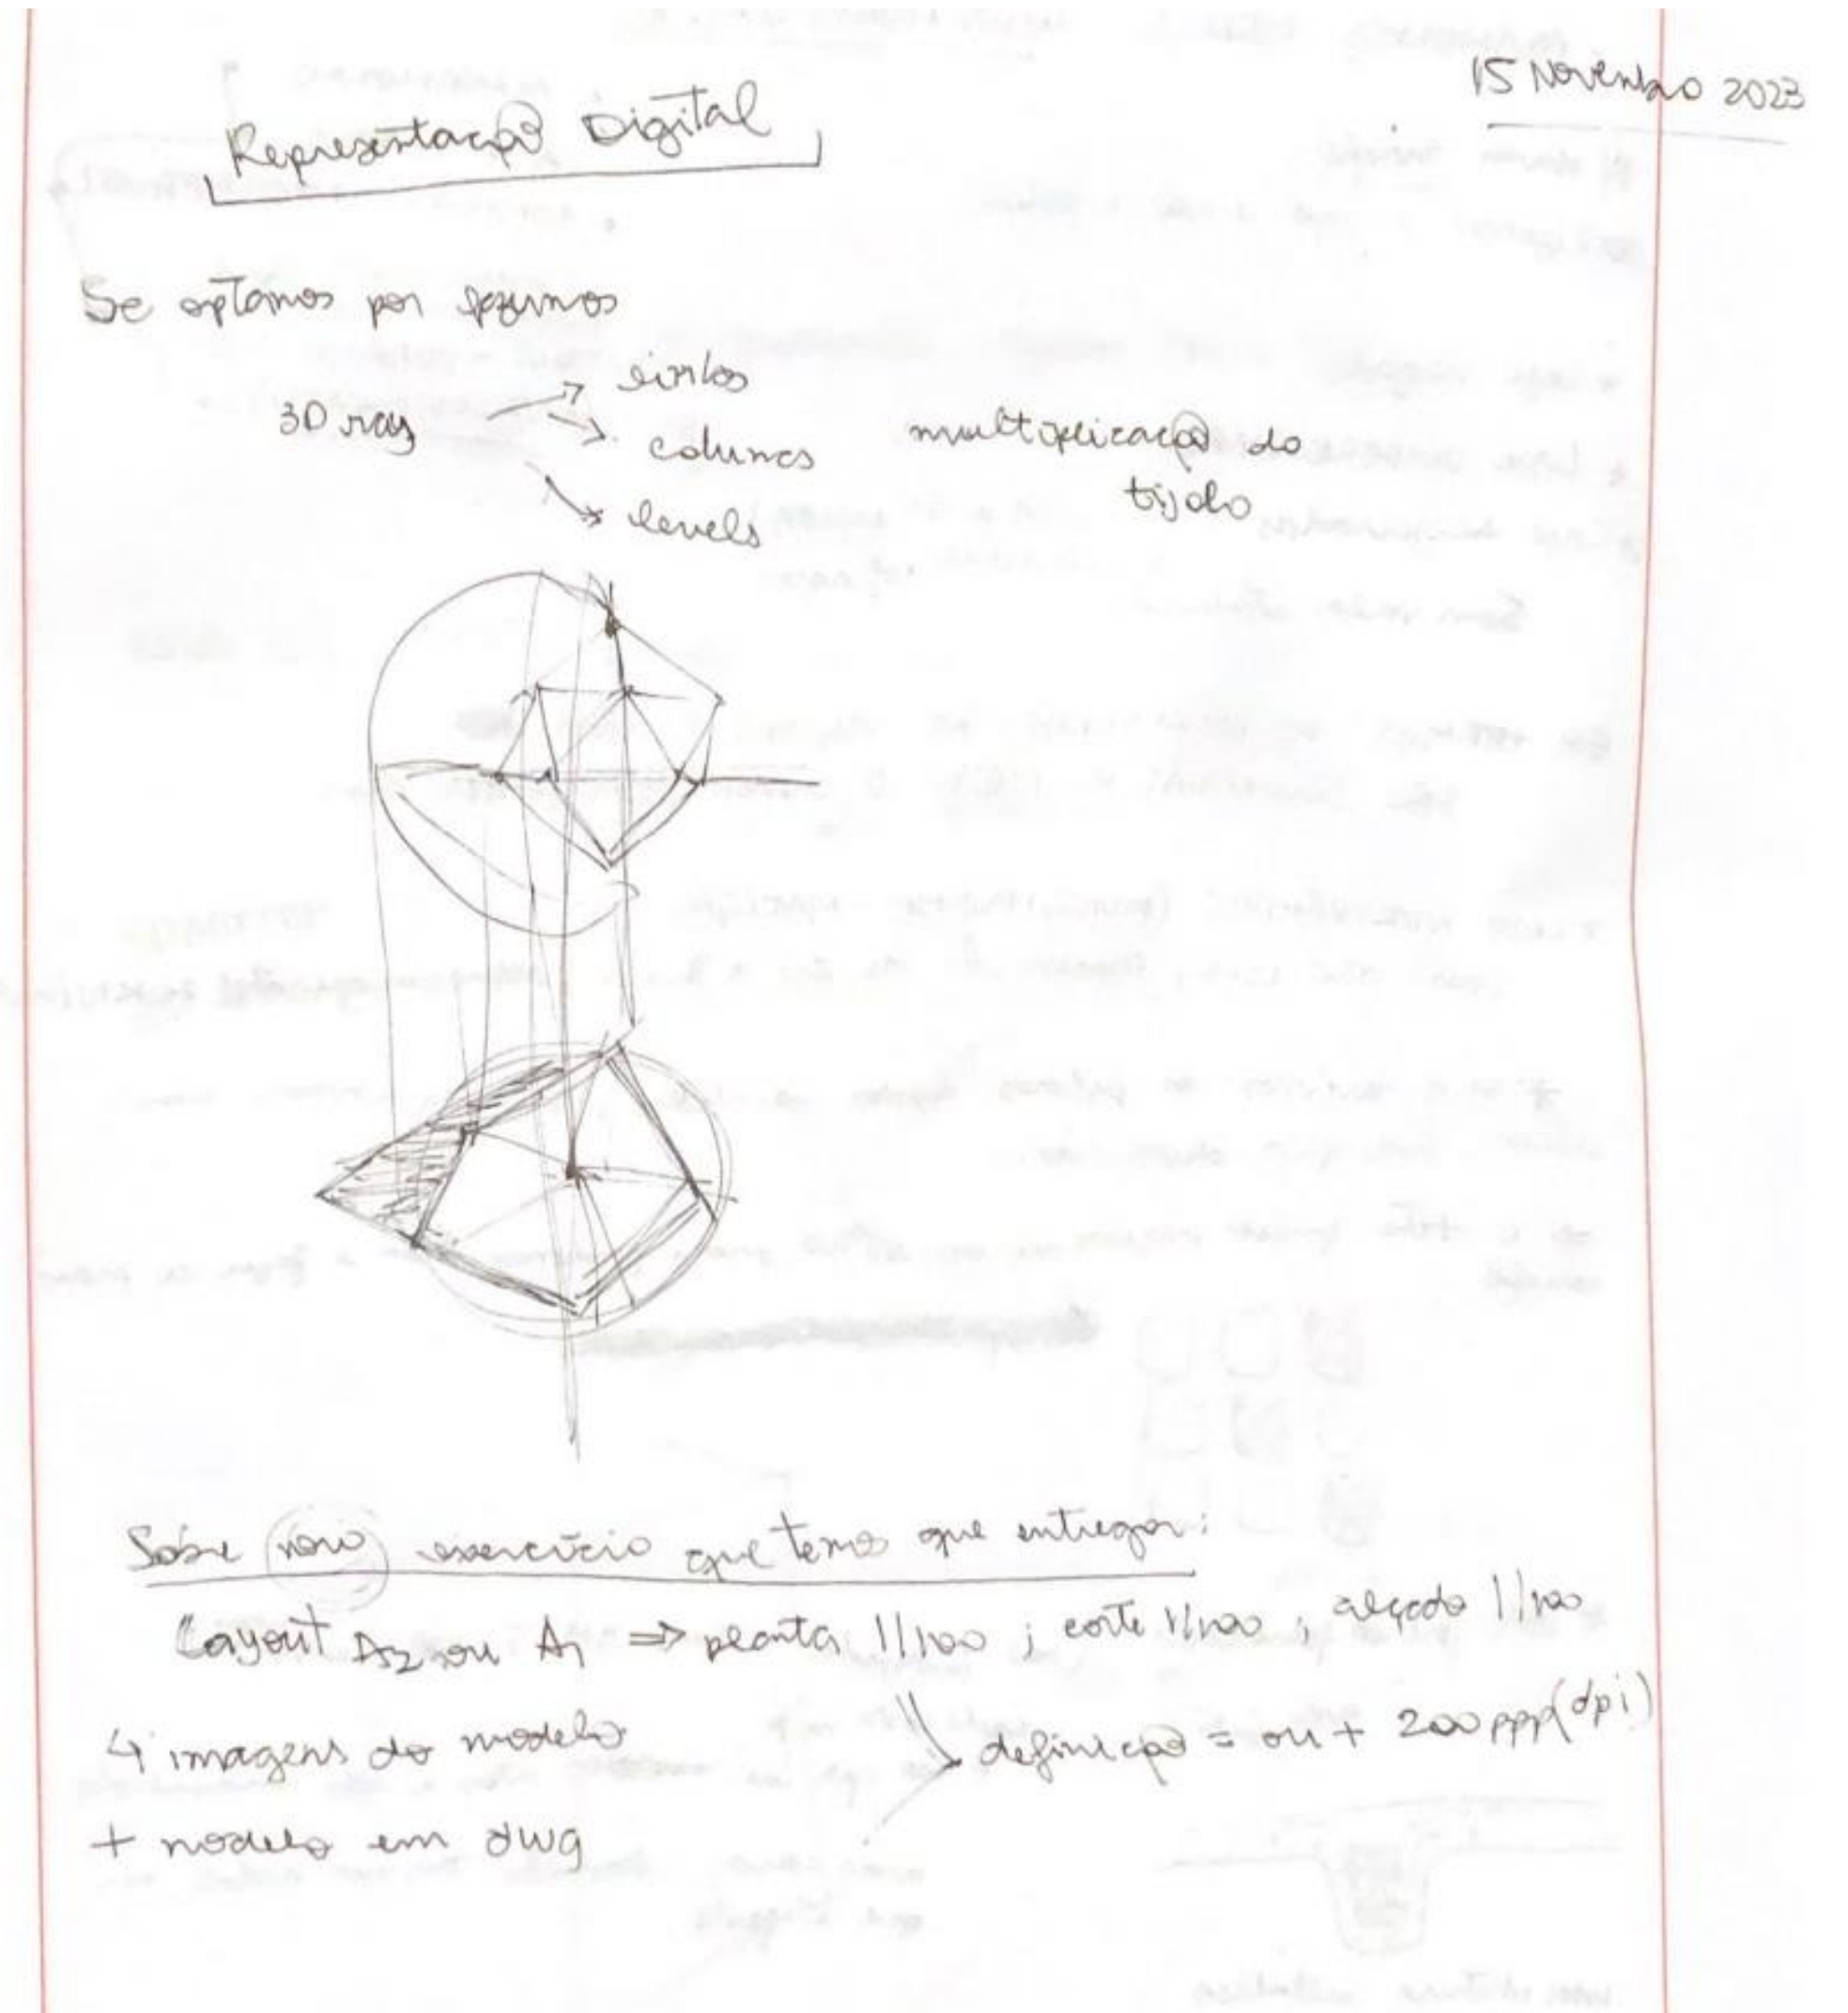 15 Novembro 2023
Representação Digital
Se optamos por fazermos
3D ray
columes
levels
multiplicação do
tijolo
Sobre novo exercício que temos que entregar:
Layout A2 ou A1 ⇒ planta 1/100 ; corte 1/100 ; alçado 1/100
4 imagens do modelo
definição = ou + 200 ppp (dpi)
+ modelo em dwg